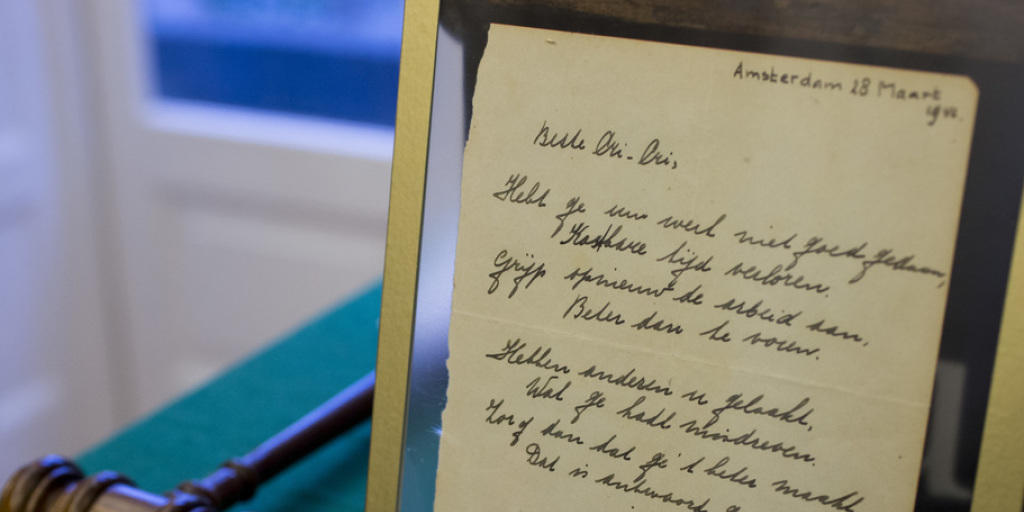 Amsterdam 28 Maart
Beste Cri-Cri,
Hebt ge uw werk niet goed gedaan,
Kostbare tijd verloren.
Grijp opnieuw de arbeid aan,
Beter dan te voren.
Hebben anderen u gelaakt,
Wat ge hadt misdreven.
Zorg dan dat ge 't beter maakt
Dat is antwoord